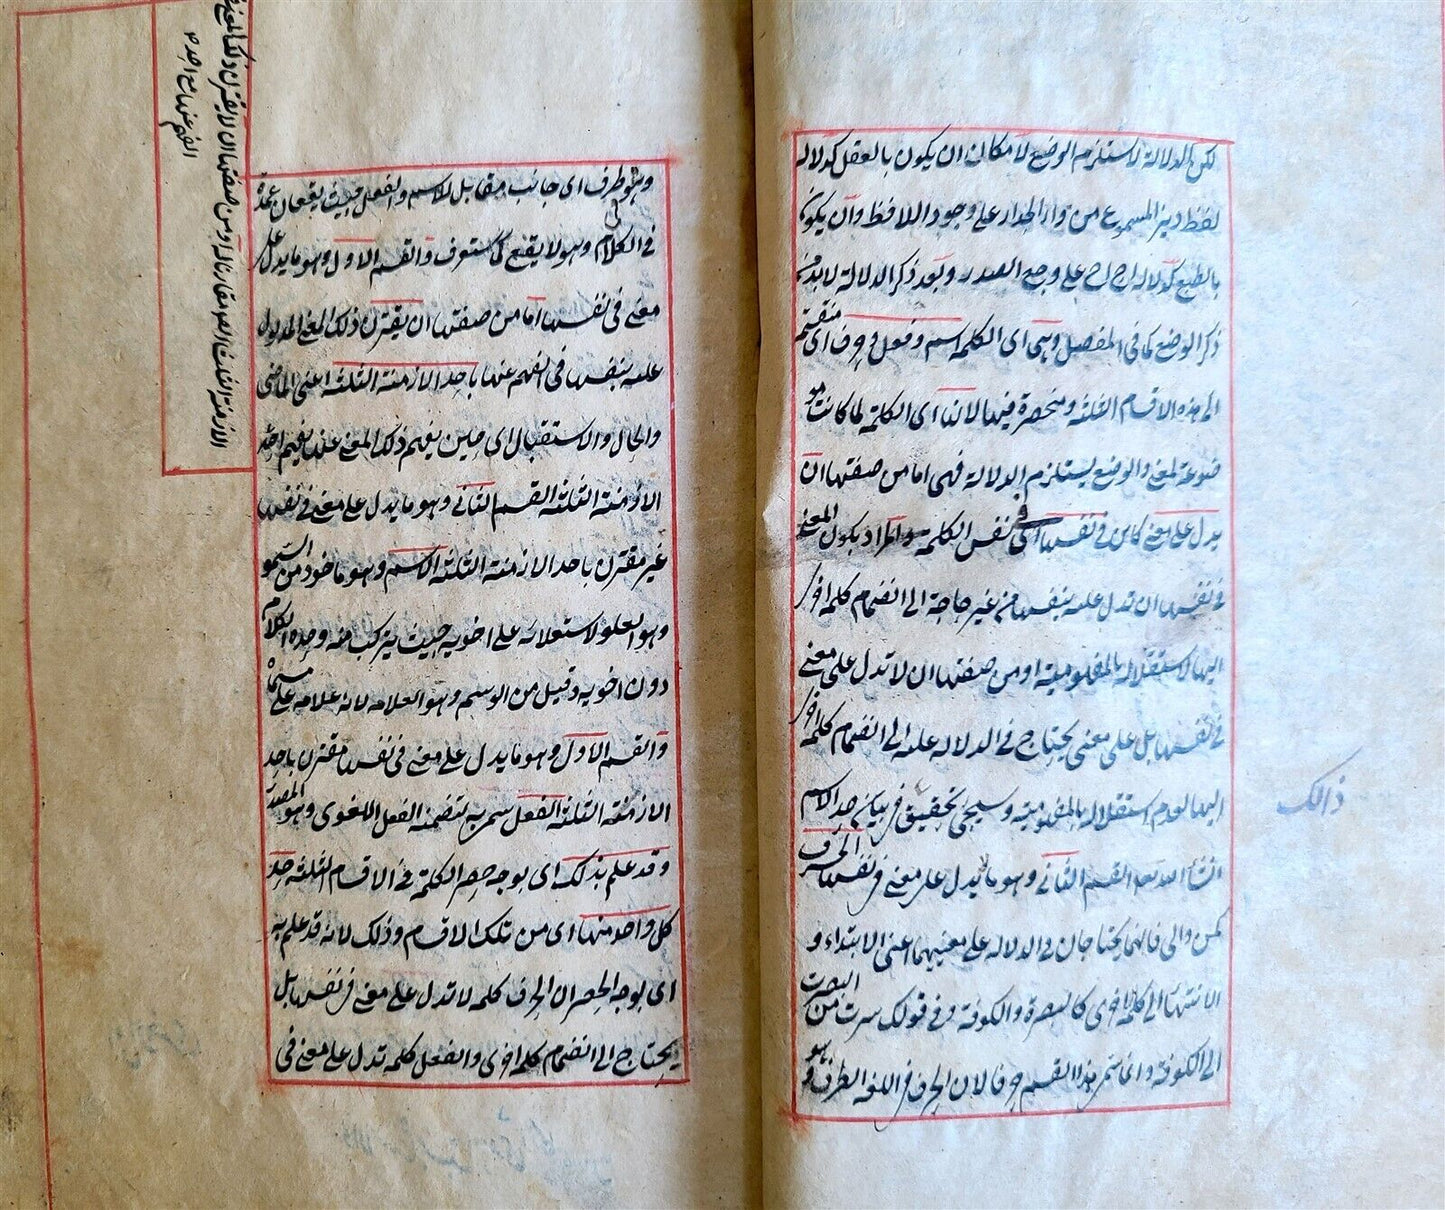 لكن الدلالة لا تستلزم الوضع لامكان ان يكون بالعقل كدلالة
لفظ ديز المسموع من وراء الجدار على وجود اللافظ وان يكون
بالطبع كدلالة اح اح على وجع الصدر وبعد ذكر الدلالة لا بد من
ذكر الوضع كما في المفصل وهي اى الكلمة اسم وفعل وحرف اى منقسمة
الى هذه الاقسام الثلثة ومنحصرة فيها لانها اى الكلمة لما كانت مو
ضوعة لمعنى والوضع يستلزم الدلالة فهى اما من صفتها ان
يدل على معنى كائن في نفسها اى في نفس الكلمة والمراد بكون المعنى
في نفسها ان تدل عليه بنفسها من غير حاجة الى انضمام كلمة اخرى
اليها لاستقلاله بالمفهومية او من صفتها ان لا تدل على معنى
في نفسها بل على معنى يحتاج في الدلالة عليه الى انضمام كلمة اخرى
اليها لعدم استقلاله بالمفهومية وسيجئ تحقيق في بيان حد الاسم
انشاء الله تعه القسم الثانى وهو ما لا يدل على معنى في نفسها الحرف
كمن والى فانهما يحتاجان فى الدلالة على معنييهما اعنى الابتداء و
الانتهاء الى كلمة اخرى كالبصرة والكوفة وفي قولك سرت من البصرت
الى الكوفة وانما سمى هذا القسم حرفا لان الحرف في اللغة الطرف وهو
وهو طرف اى جانب مقابل للاسم والفعل حيث يقعان عمدة
في الكلام وهو لا يقع كما ستعرف والقسم الاول وهو ما يدل على
معنى في نفسها اما من صفتها ان يقترن ذلك المعنى المدلول
عليه بنفسها في الفهم عنها باحد الازمنة الثلثة اعنى الماضى
والحال والاستقبال اى حين يفهم ذلك المعنى عنها يفهم احد
الازمنة الثلثة القسم الثانى وهو ما يدل على معنى في نفسها
غير مقترن باحد الازمنة الثلثة الاسم وهو ماخوذ من السمو
وهو العلو لاستعلائه على اخويه حيث يتركب منه وحده الكلام
دون اخويه وقيل من الوسم وهو العلامة لانه علامة على مسماه
والقسم الاول وهو ما يدل على معنى في نفسها مقترن باحد
الازمنة الثلثة الفعل سمى به لتضمنه الفعل اللغوى وهو المصدر
وقد علم بذلك اى بوجه حصر الكلمة في الاقسام الثلثة حد
كل واحد منها اى من تلك الاقسام وذلك لانه قد علم به
اى بوجه الحصر ان الحرف كلمة لا تدل على معنى في نفسها بل
يحتاج الى انضمام كلمة اخرى والفعل كلمة تدل على معنى في
ذالك
الازمنة الثلث او من صفتها ان لا يقترن ذلك المعنى
الفهم عنها مع احد